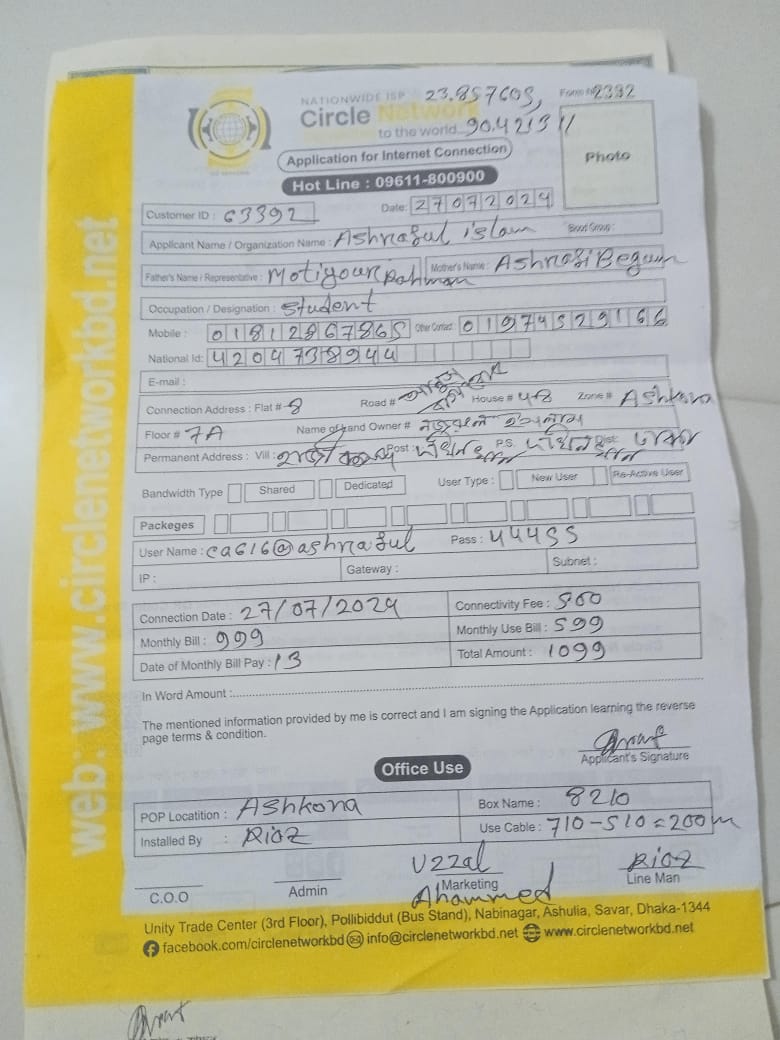 NATIONWIDE ISP 23.857603, Form № 2392
Circle Network
to the world 90.421311
Application for Internet Connection
Photo
Hot Line : 09611-800900
Customer ID : 63392 Date: 27072024
Applicant Name / Organization Name : Ashraful islam Blood Group :
Father's Name / Representative : Motiyour Rahman Mother's Name : Ashrafi Begum
Occupation / Designation : Student
Mobile : 01812867865 Other Contact : 01974529166
National Id: 4204738944
E-mail :
Connection Address : Flat # 8 Road # House # 48 Zone # Ashkona
Floor # 7A Name of Land Owner # ইসলাম
Permanent Address : Vill : Post : P.S. Dist:
Bandwidth Type Shared Dedicated User Type : New User Re-Active User
Packeges
User Name : ca616@ashraful Pass : 44455
IP : Gateway : Subnet :
Connection Date : 27/07/2024 Connectivity Fee : 500
Monthly Bill : 999 Monthly Use Bill : 599
Date of Monthly Bill Pay : 13 Total Amount : 1099
In Word Amount :
The mentioned information provided by me is correct and I am signing the Application learning the reverse
page terms & condition.
Applicant's Signature
Office Use
POP Locatition : Ashkona Box Name : 8210
Installed By : Riaz Use Cable : 710-510=200m
Uzzal Riaz
C.O.O Admin Marketing Line Man
Ahammed
Unity Trade Center (3rd Floor), Pollibiddut (Bus Stand), Nabinagar, Ashulia, Savar, Dhaka-1344
facebook.com/circlenetworkbd info@circlenetworkbd.net www.circlenetworkbd.net
web: www.circlenetworkbd.net